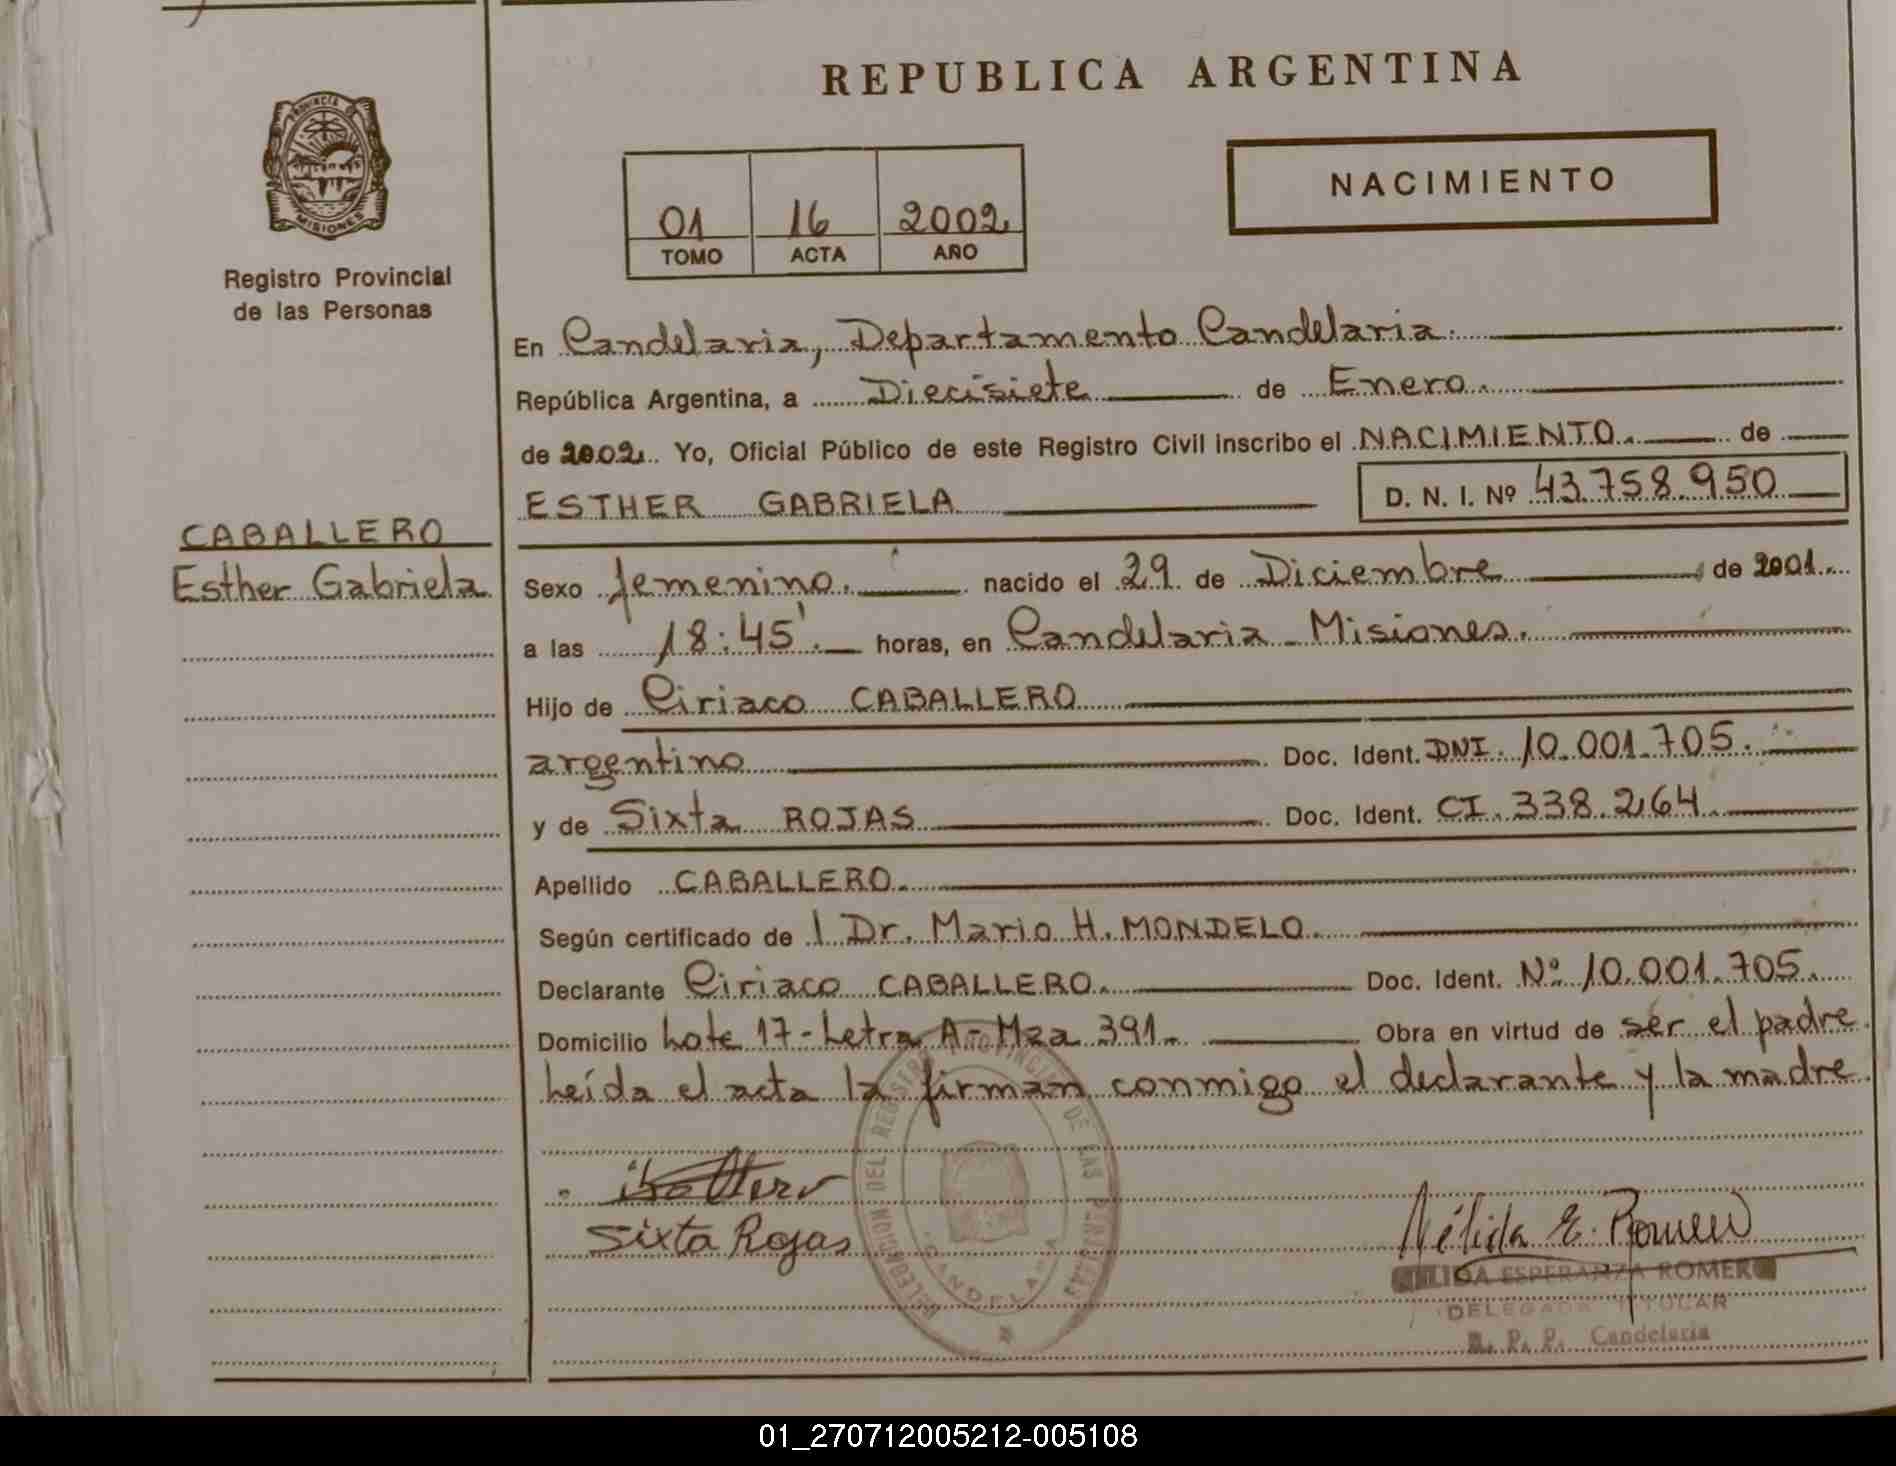 REPUBLICA ARGENTINA
PROVINCIA DE
MISIONES
Registro Provincial
de las Personas
NACIMIENTO
01 16 2002
TOMO ACTA AÑO
En Candelaria, Departamento Candelaria.
República Argentina, a Diecisiete de Enero.
de 2002. Yo, Oficial Público de este Registro Civil inscribo el NACIMIENTO. de
ESTHER GABRIELA D. N. I. Nº 43.758.950
CABALLERO
Esther Gabriela
Sexo femenino. nacido el 29 de Diciembre de 2001.
a las 18:45'. horas, en Candelaria - Misiones.
Hijo de Ciriaco CABALLERO
argentino Doc. Ident. DNI. 10.001.705.
y de Sixta ROJAS Doc. Ident. CI. 338.264.
Apellido CABALLERO.
Según certificado de l Dr. Mario H. MONDELO.
Declarante Ciriaco CABALLERO. Doc. Ident. Nº 10.001.705.
Domicilio Lote 17 - Letra A - Mza 391. Obra en virtud de ser el padre.
Leída el acta la firman conmigo el declarante y la madre.
DELEGACION DEL REGISTRO PROVINCIAL DE LAS PERSONAS
CANDELARIA
Sixta Rojas
Nélida E. Romero
NELIDA ESPERANZA ROMERO
DELEGADA TITULAR
R. P. P. Candelaria
01_270712005212-005108